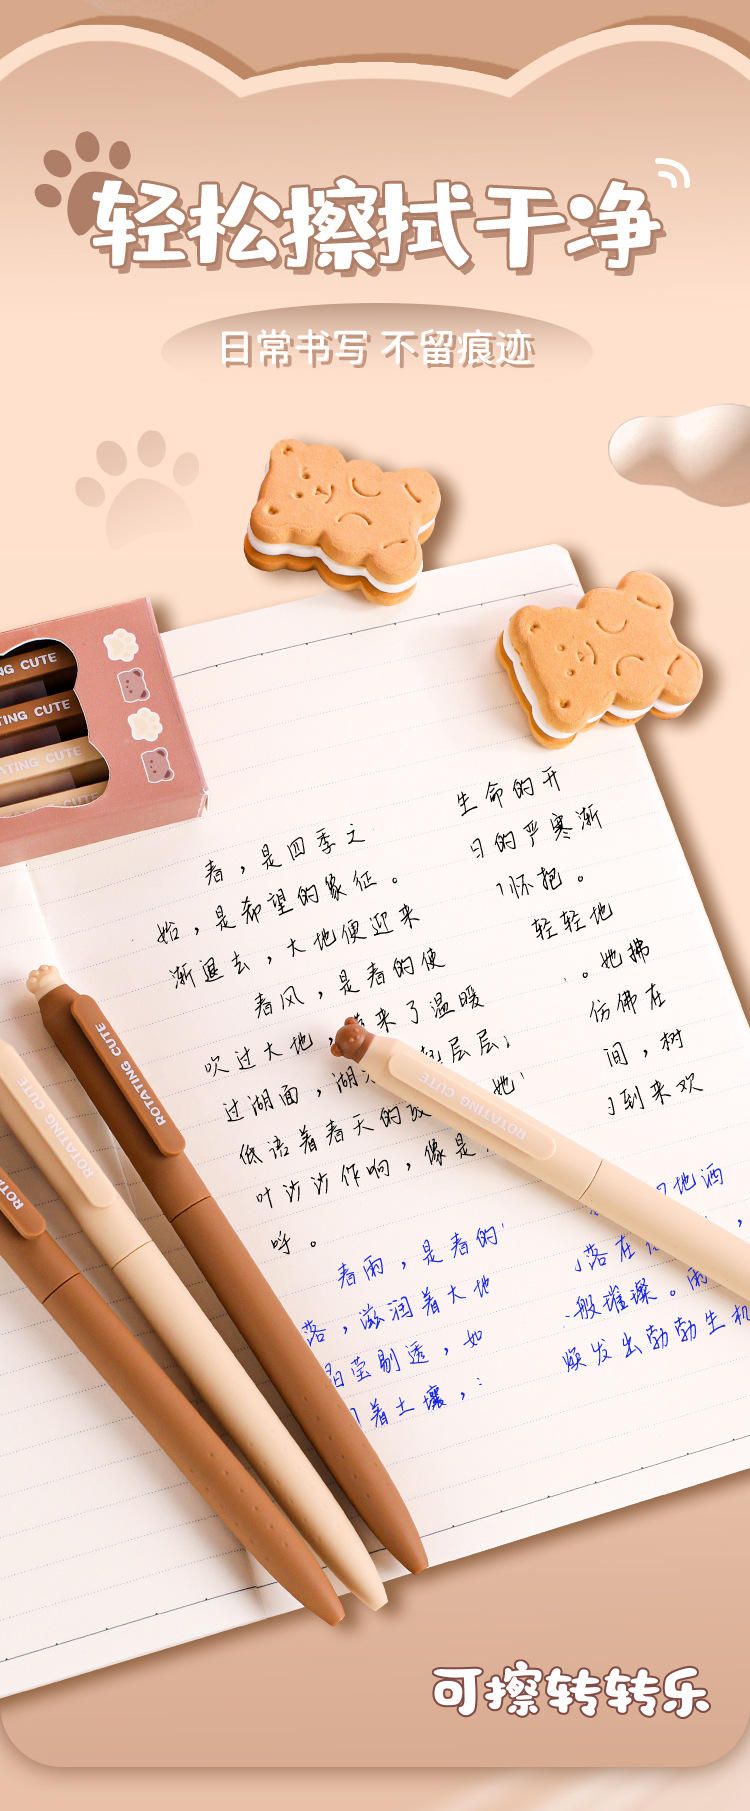 轻松擦拭干净
日常书写 不留痕迹
NG CUTE
TING CUTE
ATING CUTE
CUTE
生命的开
春，是四季之
日的严寒渐
始，是希望的象征。
怀抱。
渐退去，大地便迎来
轻轻地
春风，是春的使
。她拂
吹过大地，带来了温暖
仿佛在
过湖面，湖 层层
间，树
低语着春天的 她
到来欢
叶沙沙作响，像是
呼。
地洒
春雨，是春的
落在
落，滋润着大地
般璀璨。雨
晶莹剔透，如
焕发出勃勃生机
着土壤，
ROTATING CUTE
ROTATING CUTE
ROTATING CUTE
ROTA
可擦转转乐